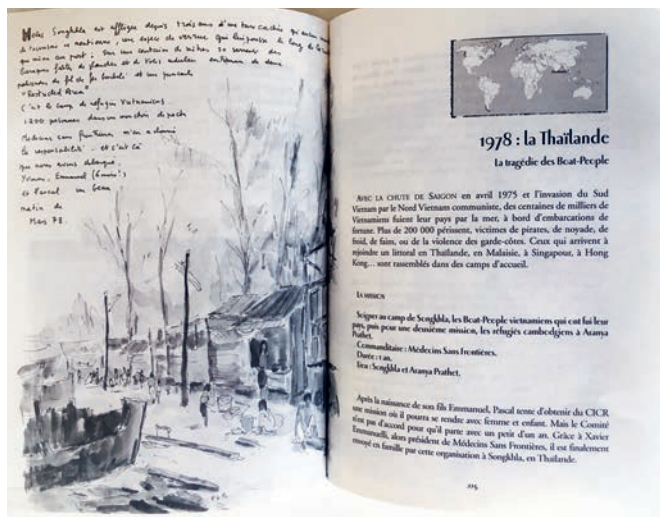 Notre Songkhla est affligée depuis trois ans d'une tour cachée qui
une espèce de verrue qui le long de la
qui mène au port : Sur une centaine de mètres se serrent des
baraques faites de planches et de tôles entourées de deux
de fil de fer barbelé et une pancarte
"Restricted Area"
C'est le camp de réfugiés Vietnamiens.
1200 personnes dans un
Médecins sans frontières m'en a donné
la responsabilité.. et c'est là
que nous avons débarqué.
Yvonne, Emmanuel (6 mois)
et Pascal un beau
matin de
Mars 78.
1978 : la Thaïlande
La tragédie des Boat-People
AVEC LA CHUTE DE SAIGON en avril 1975 et l'invasion du Sud
Vietnam par le Nord Vietnam communiste, des centaines de milliers de
Vietnamiens fuient leur pays par la mer, à bord d'embarcations de
fortune. Plus de 200 000 périssent, victimes de pirates, de noyade, de
froid, de faim, ou de la violence des garde-côtes. Ceux qui arrivent à
rejoindre un littoral en Thaïlande, en Malaisie, à Singapour, à Hong
Kong… sont rassemblés dans des camps d'accueil.
LA MISSION
Soigner au camp de Songkhla, les Boat-People vietnamiens qui ont fui leur
pays, puis pour une deuxième mission, les réfugiés cambodgiens à Aranya
Prathet.
Commanditaire : Médecins Sans Frontières.
Durée : 1 an.
Lieu : Songkhla et Aranya Prathet.
Après la naissance de son fils Emmanuel, Pascal tente d'obtenir du CICR
une mission où il pourra se rendre avec femme et enfant. Mais le Comité
n'est pas d'accord pour qu'il parte avec un petit d'un an. Grâce à Xavier
Emmanuelli, alors président de Médecins Sans Frontières, il est finalement
envoyé en famille par cette organisation à Songkhla, en Thaïlande.